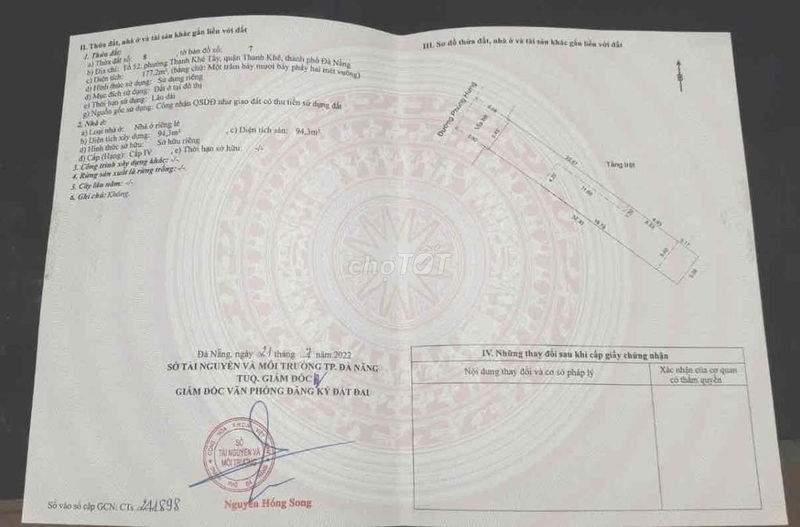 II. Thửa đất, nhà ở và tài sản khác gắn liền với đất
1. Thửa đất:
a) Thửa đất số: 8 , tờ bản đồ số: 7
b) Địa chỉ: Tổ 52, phường Thanh Khê Tây, quận Thanh Khê, thành phố Đà Nẵng
c) Diện tích: 177,2m², (bằng chữ: Một trăm bảy mươi bảy phẩy hai mét vuông)
d) Hình thức sử dụng: Sử dụng riêng
đ) Mục đích sử dụng: Đất ở tại đô thị
e) Thời hạn sử dụng: Lâu dài
g) Nguồn gốc sử dụng: Công nhận QSDĐ như giao đất có thu tiền sử dụng đất
2. Nhà ở:
a) Loại nhà ở: Nhà ở riêng lẻ
b) Diện tích xây dựng: 94,3m² , c) Diện tích sàn: 94,3m²
d) Hình thức sở hữu: Sở hữu riêng
đ) Cấp (Hạng): Cấp IV , e) Thời hạn sở hữu: -/-
3. Công trình xây dựng khác: -/-
4. Rừng sản xuất là rừng trồng: -/-
5. Cây lâu năm: -/-
6. Ghi chú: Không.
Đà Nẵng, ngày 21 tháng 7 năm 2022
SỞ TÀI NGUYÊN VÀ MÔI TRƯỜNG TP. ĐÀ NẴNG
TUQ. GIÁM ĐỐC
GIÁM ĐỐC VĂN PHÒNG ĐĂNG KÝ ĐẤT ĐAI
SỞ
TÀI NGUYÊN VÀ
MÔI TRƯỜNG
Nguyễn Hồng Song
Số vào sổ cấp GCN: CTs 211898
chợTỐT
III. Sơ đồ thửa đất, nhà ở và tài sản khác gắn liền với đất
B
Đường Phùng Hưng
Vỉa hè
Tầng trệt
IV. Những thay đổi sau khi cấp giấy chứng nhận
Nội dung thay đổi và cơ sở pháp lý
Xác nhận của cơ quan
có thẩm quyền